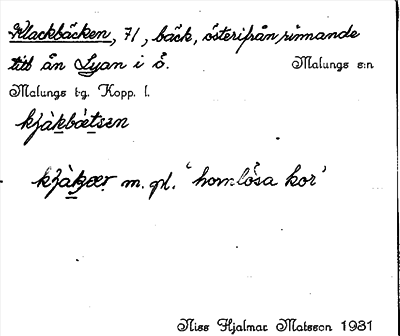 Klackbäcken, 71, bäck, österifrån rinnande
till ån Lyan i ö. Malungs s:n
Malungs tg. Kopp. l.
kjàkbætsen
kjàkær m. pl. 'hornlösa kor'
Niss Hjalmar Matsson 1931